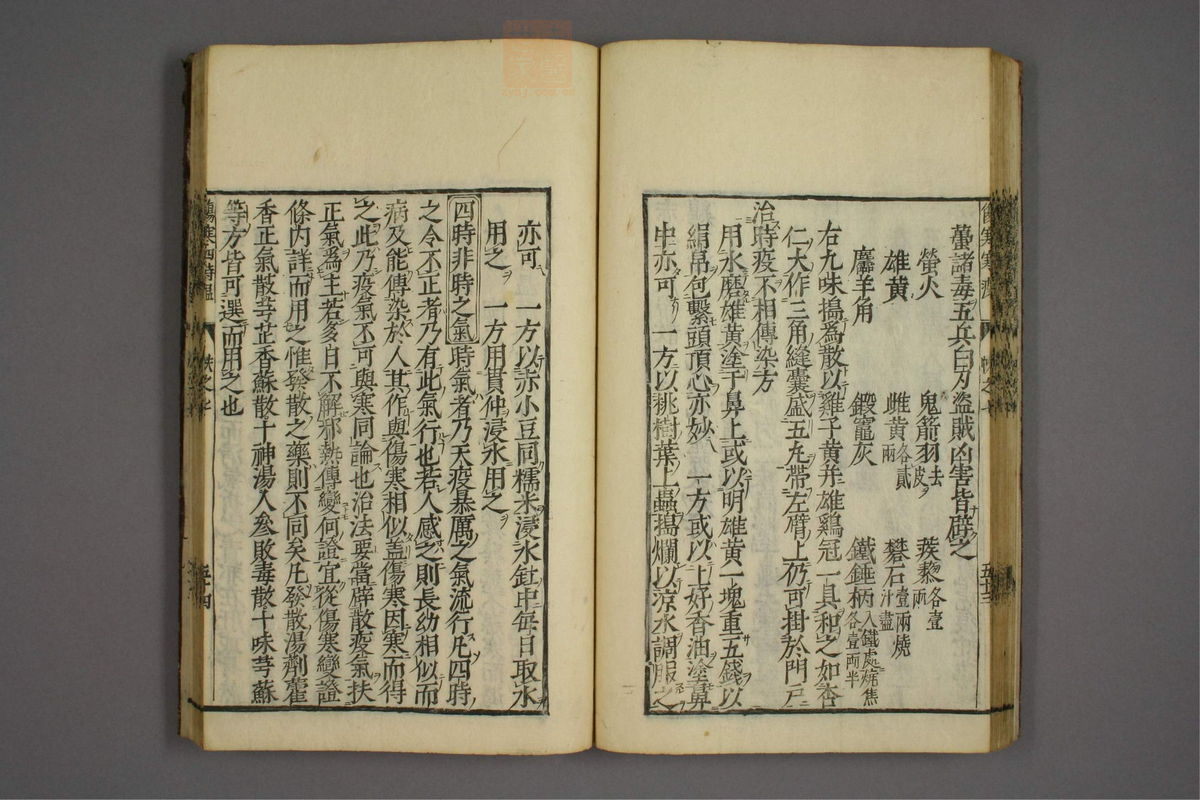 蠆諸毒五兵白刃盜賊凶害皆辟之
螢火 鬼箭羽去皮 蒺藜各壹兩
雄黄 雌黄各貳兩 礬石壹兩燒汁盡
羚羊角 鍛竈灰 鐵錘柄入鐵處燒焦各壹兩半
右九味搗為散以雞子黄并雄鷄冠一具和之如杏
仁大作三角縫囊盛五丸帶左臂上仍可掛於門戶
治時疫不相傳染方
用水磨雄黄塗于鼻上或以明雄黄一塊重五錢以
絹帛包繫頭頂心亦妙 一方或以上好香油塗鼻
中亦可 一方以桃樹葉上蟲搗爛以涼水調服之
亦可 一方以赤小豆同糯米浸水缸中每日取水
用之 一方用貫仲浸水用之
四時非時之氣時氣者乃天疫暴厲之氣流行凡四時
之令不正者乃有此氣行也若人感之則長幼相似而
病及能傳染於人其作與傷寒相似蓋傷寒因寒而得
之此乃疫氣不可與寒同論也治法要當辟散疫氣扶
正氣為主若多日不解邪熱傳變何證宜從傷寒變證
條内詳而用之惟發散之藥則不同矣凡發散湯劑藿
香正氣散芎芷香蘇散十神湯人參敗毒散十味芎蘇
等方皆可選而用之也
傷寒四時温 帙之七 五十四